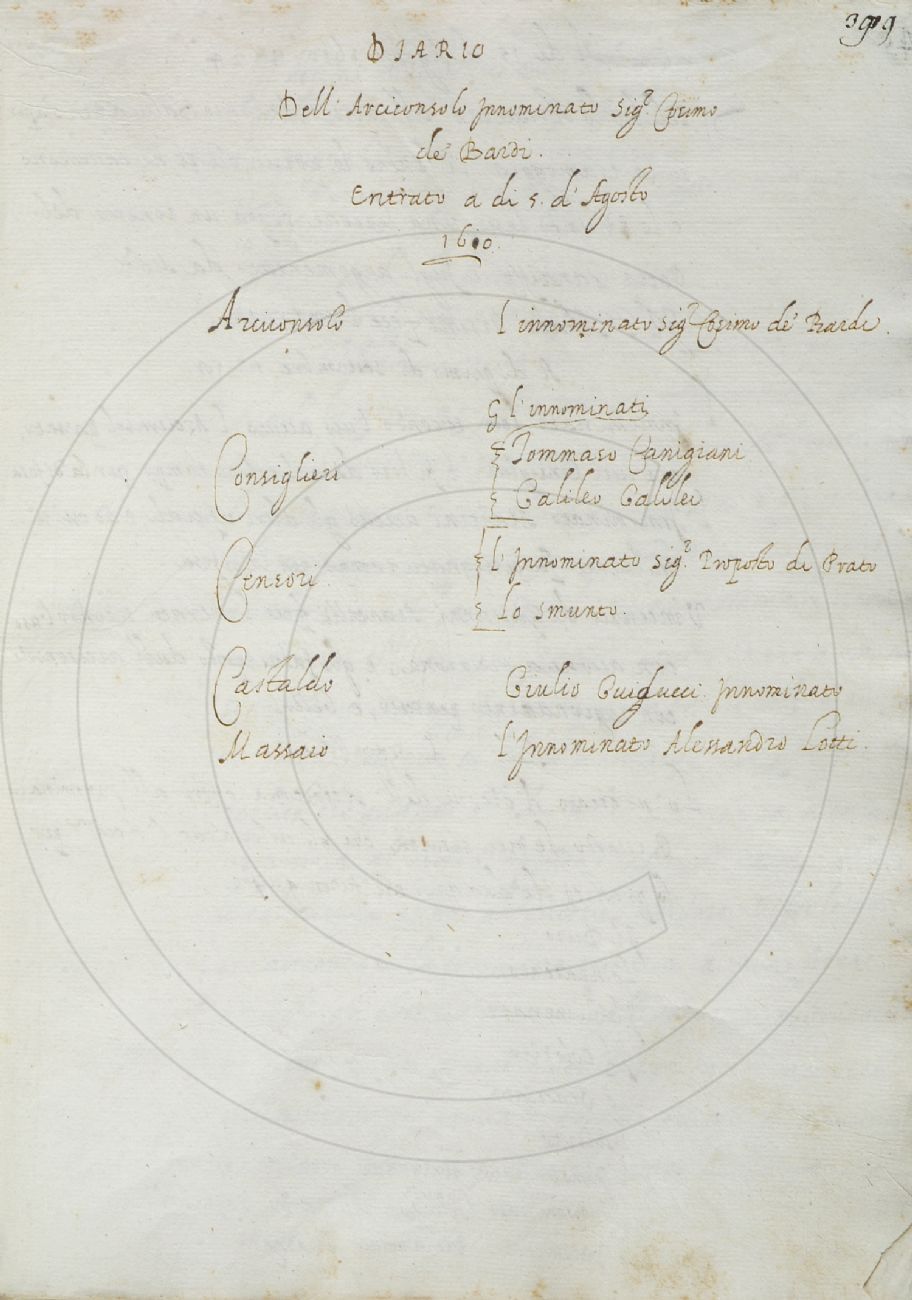 399
DIARIO
Dell' Arciconsolo Innominato Sig.r Cosimo
de' Bardi.
Entrato a di 5. d' Agosto
16 0.
Arciconsolo l'innominato Sig.r Cosimo de' Bardi.
Gl'innominati
Consiglieri Tommaso Canigiani
Galileo Galilei
Censori l'Innominato Sig.r Proposto di Prato
Lo Smunto.
Castaldo Giulio Guiducci Innominato
Massaio l'Innominato Alessandro Lotti.